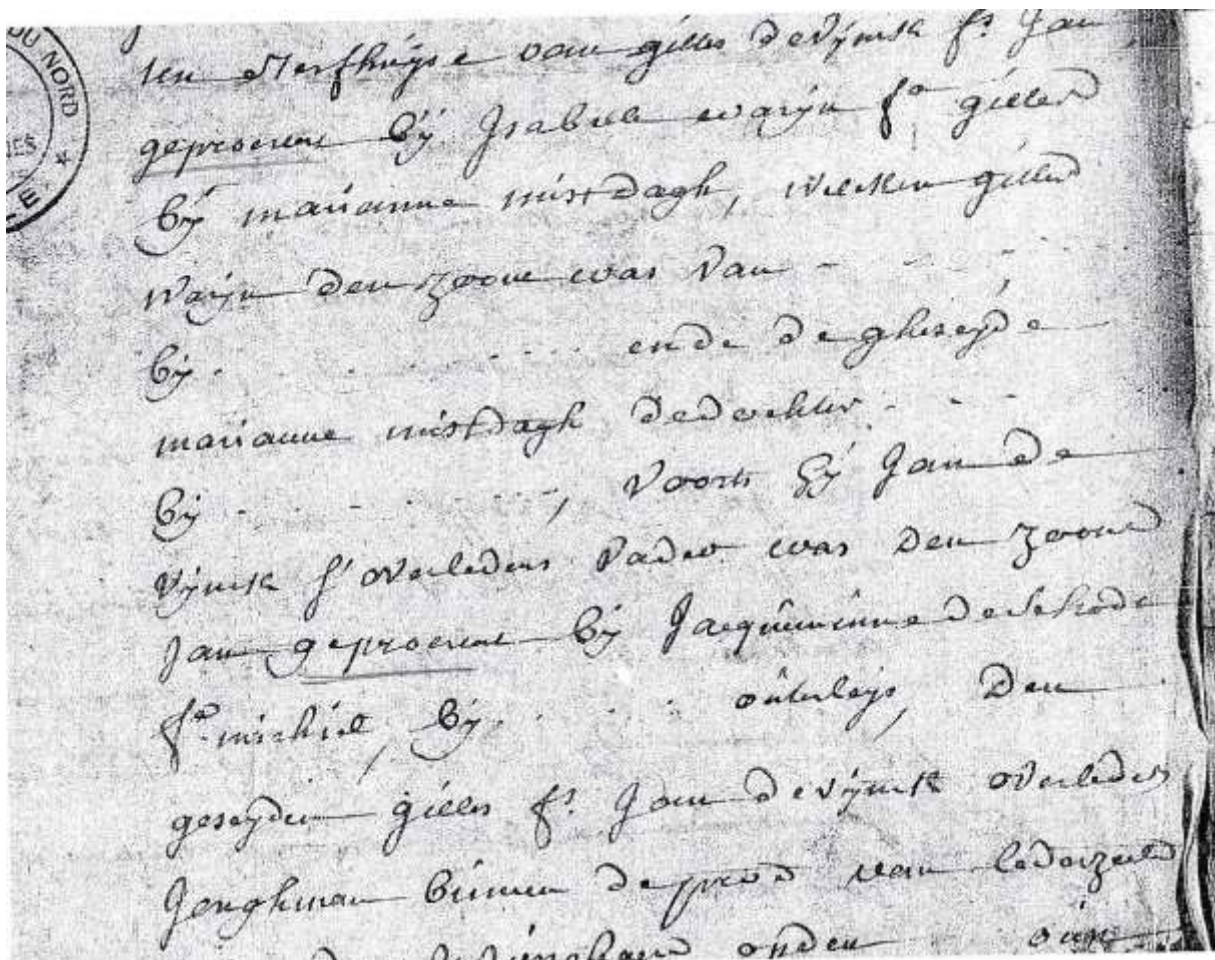 DU NORD
ten sterfhuyse van gilles devynck fs. Jan
geprocreert by Isabelle waryn fa gilles
by marianne mistdagh, welcken gilles
waryn den zoone was van - . . . .
by . . . . . . . ende de gheseyde
marianne mistdagh de dochter . - . -
by . . . . . . . , voorts hy Jan de
vynck s'overledens vader was den zoone
Jan geprocreert by Jacqueminne deschodt
fa michiel, by . . . outerleys, den
geseyden gilles fs. Jan devynck overleden
Jonghman binnen de prod van lederzeele
onder